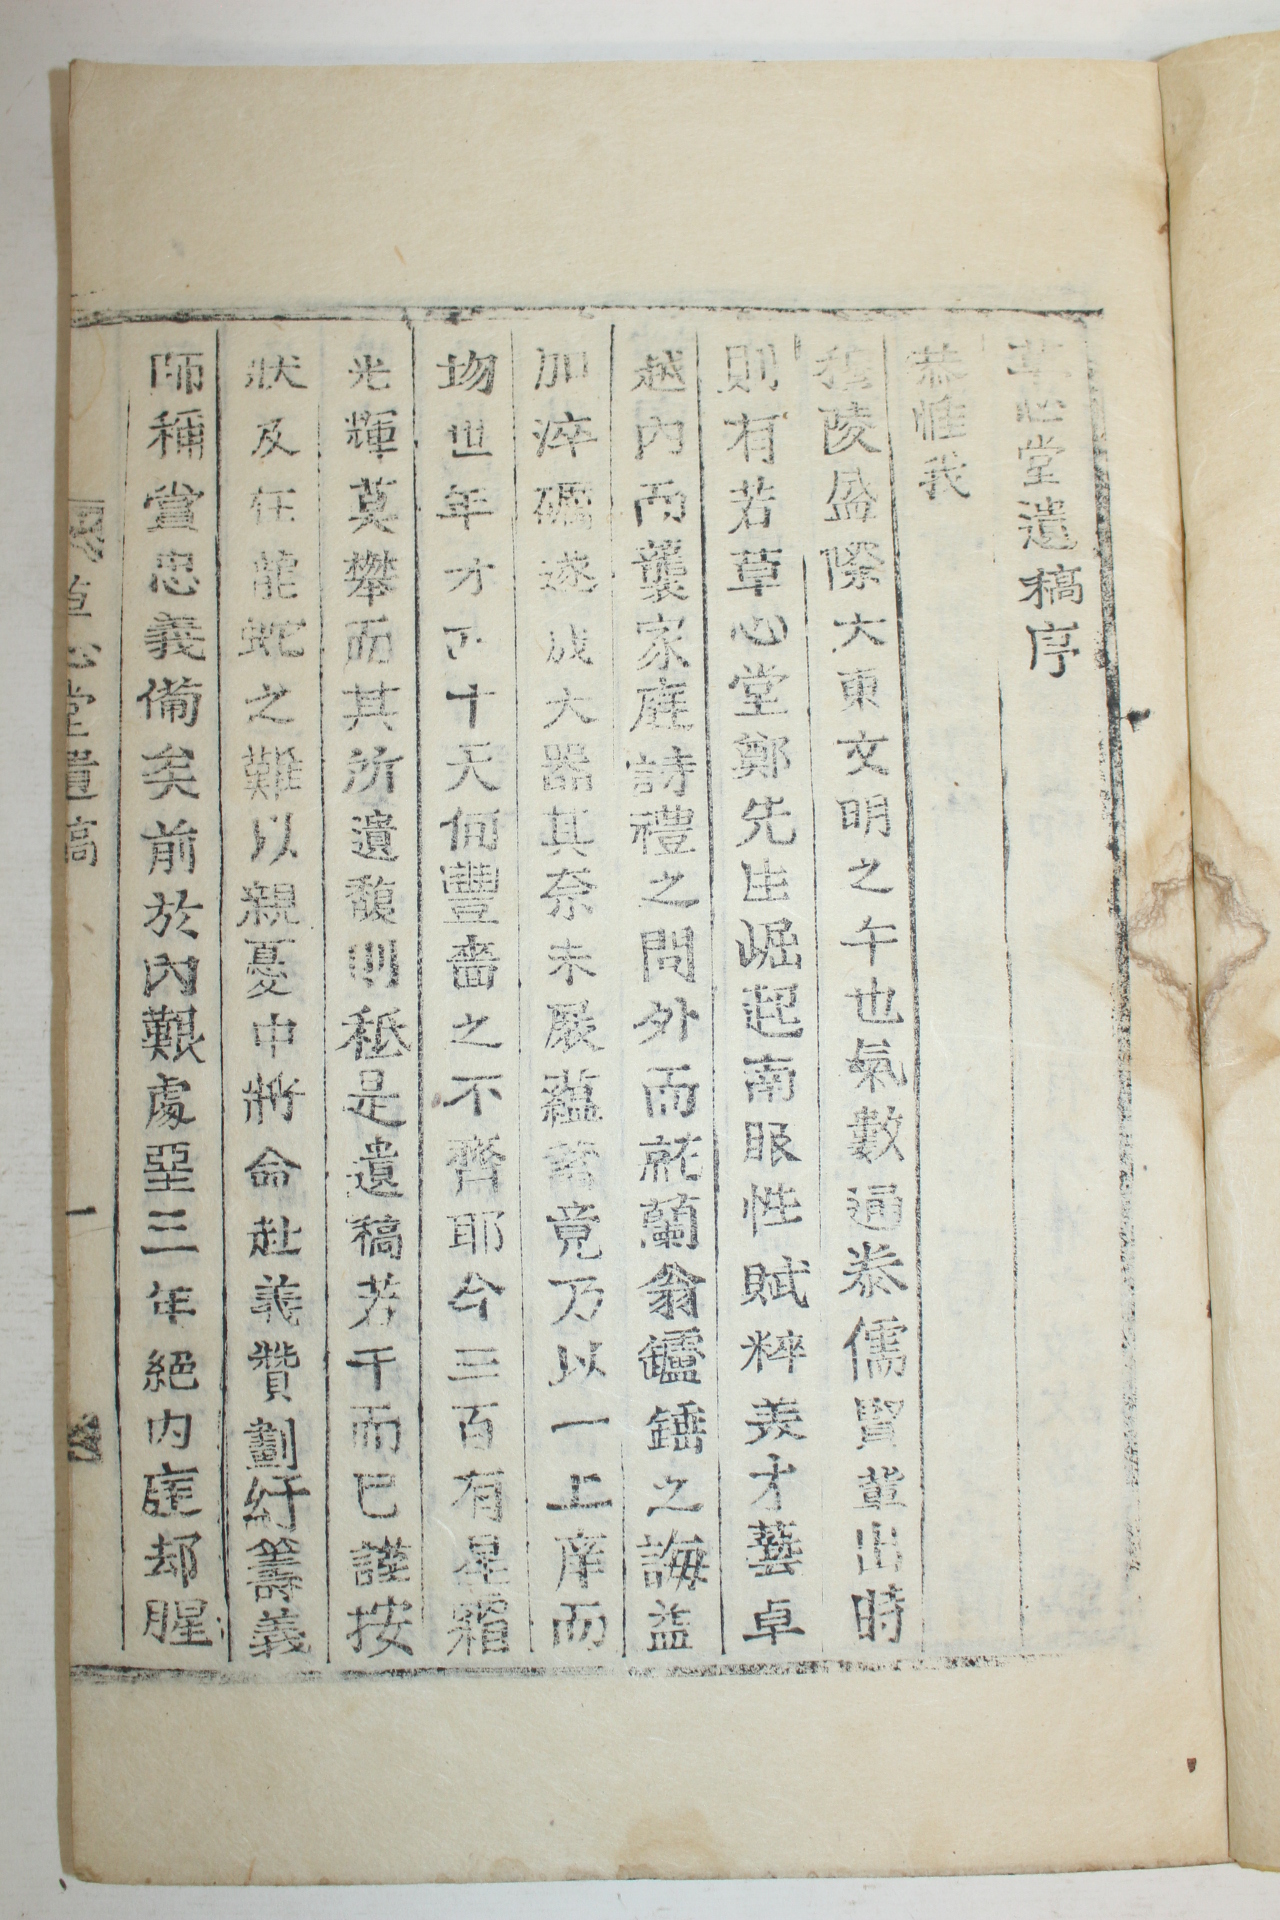 草心堂遺稿序
恭惟我
穆陵盛際大東文明之午也氣數逼泰儒賢輩出時
則有若草心堂鄭先生崛起南服性賦粹美才藝卓
越內而襲家庭詩禮之間外而託蘭翁鑪錘之誨益
加淬礪遂成大器其奈未展蘊蓄竟乃以一上庠而
歿世年才五十天何豐嗇之不齊耶今三百有星霜
光輝莫攀而其所遺馥則秪是遺稿若干而已謹按
狀及任龍蛇之難以親憂中將命赴義贊劃紆籌義
師稱賞忠義備矣前於內艱處堊三年絕內庭却腥
草心堂遺稿
一